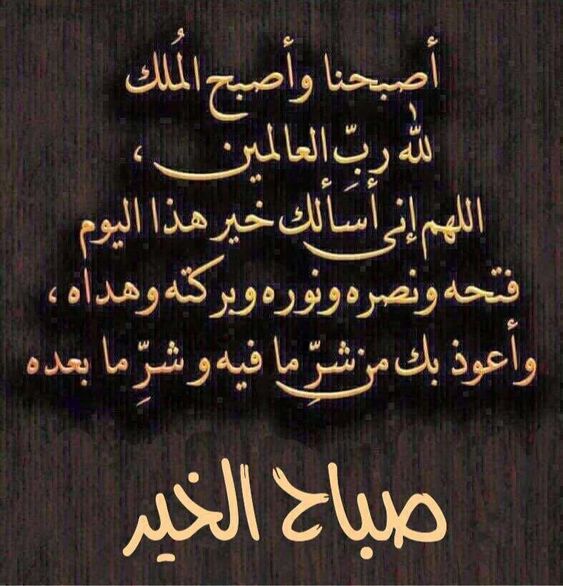 أصبحنا وأصبح المُلك
لله ربِّ العالمين ،
اللهم إنى أسألك خير هذا اليوم
فتحه ونصره ونوره وبركته وهداه ،
وأعوذ بك من شرِّ ما فيه و شرِّ ما بعده
صباح الخير